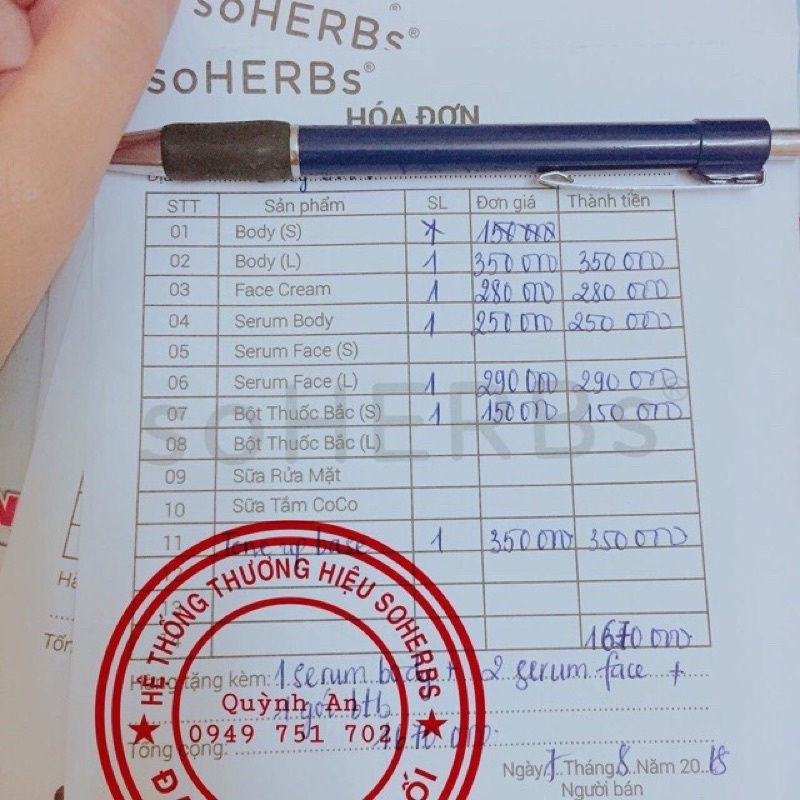 soHERBs®
soHERBs®
HÓA ĐƠN
STT Sản phẩm SL Đơn giá Thành tiền
01 Body (S) 150 000
02 Body (L) 1 350 000 350 000
03 Face Cream 1 280 000 280 000
04 Serum Body 1 250 000 250 000
05 Serum Face (S)
06 Serum Face (L) 1 290 000 290 000
07 Bột Thuốc Bắc (S) 1 150 000 150 000
soHERBs®
08 Bột Thuốc Bắc (L)
09 Sữa Rửa Mặt
10 Sữa Tắm CoCo
11 Tone up base 1 350 000 350 000
1670 000
Hàng tặng kèm: 1 serum body + 2 serum face +
1 gói btb
Tổng cộng: 1670 000
Ngày 7 Tháng 8 Năm 2018
Người bán
HỆ THỐNG THƯƠNG HIỆU SOHERBS
Quỳnh An
0949 751 702